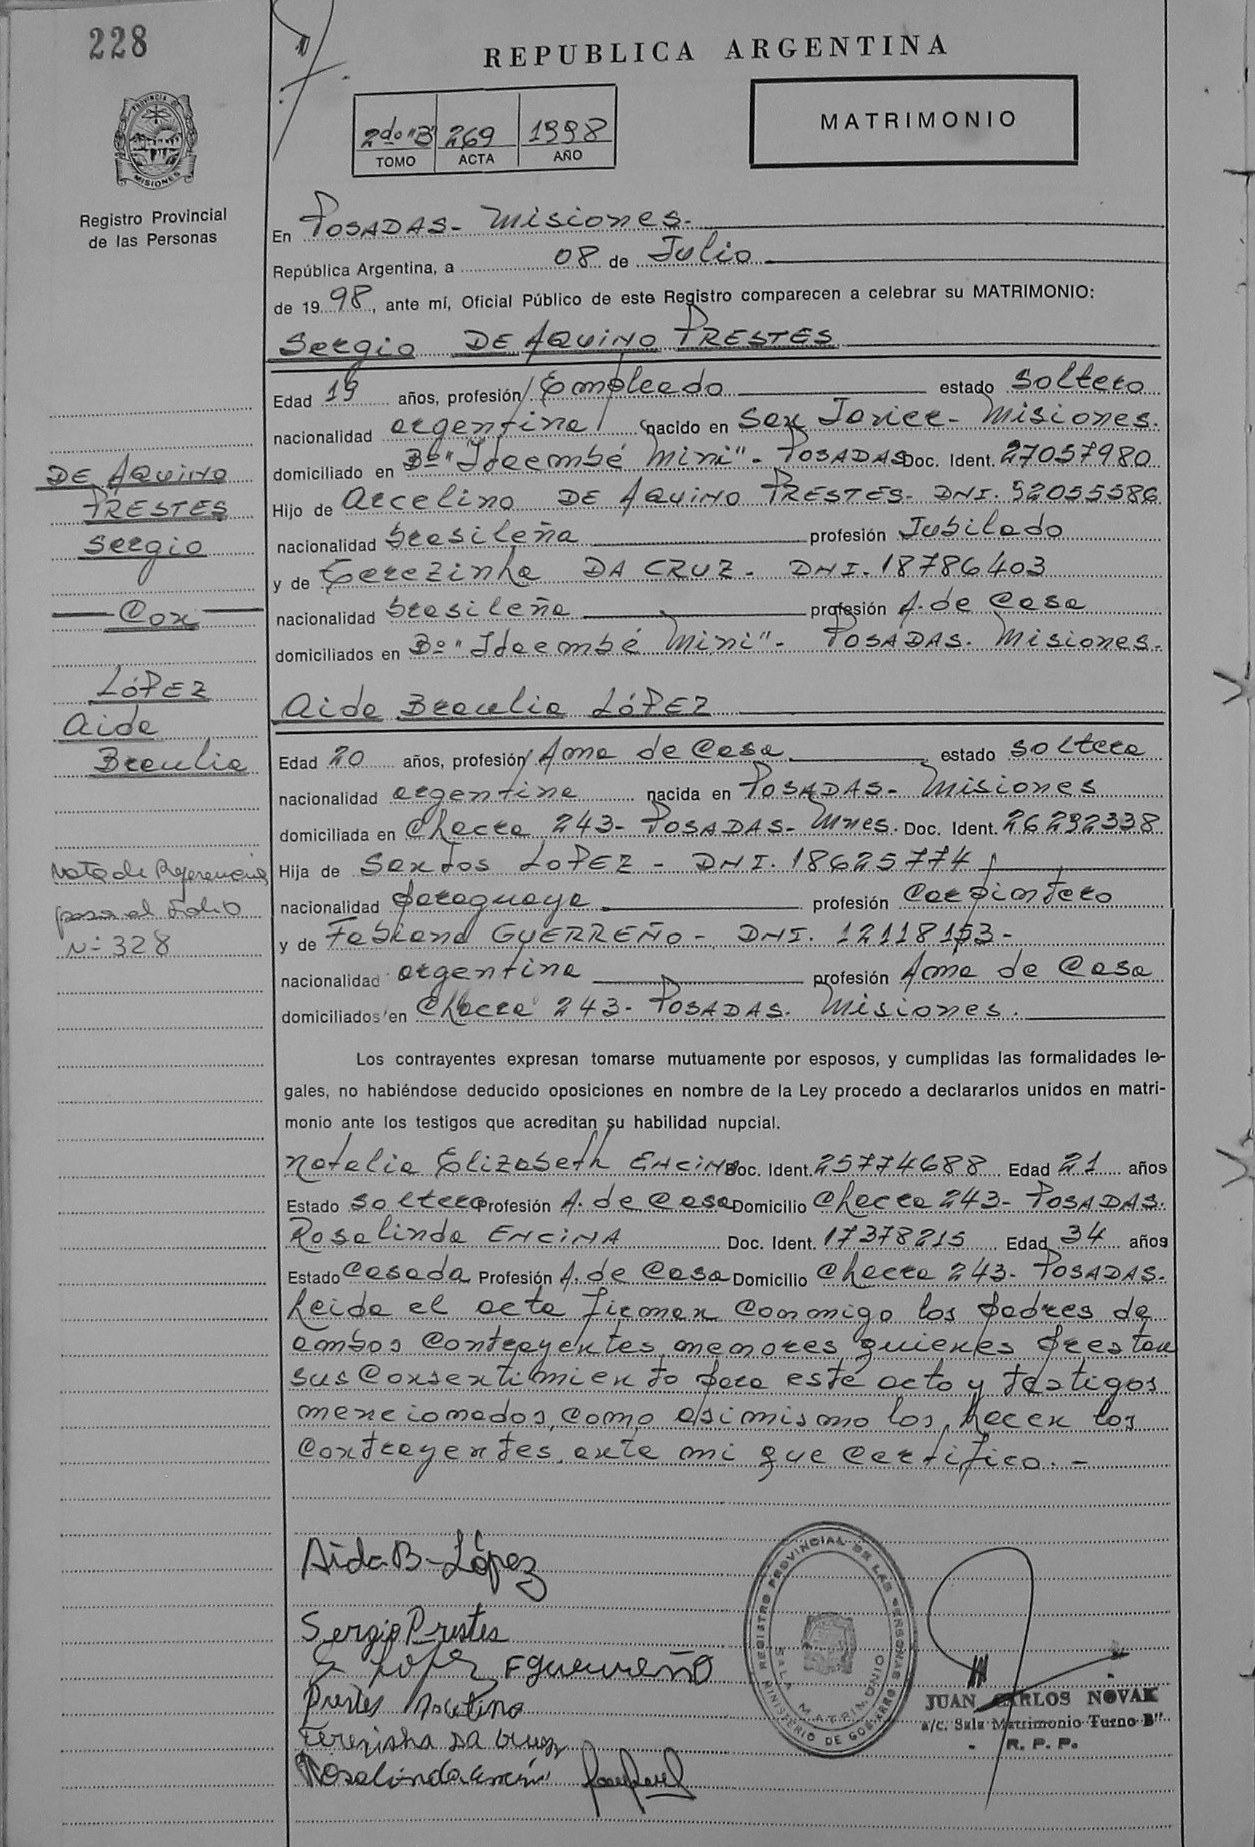 228
REPUBLICA ARGENTINA
PROVINCIA DE
MISIONES
Registro Provincial
de las Personas
2do "B" 269 1998
TOMO ACTA AÑO
MATRIMONIO
En POSADAS- Misiones.
República Argentina, a 08 de Julio
de 1998, ante mí, Oficial Público de este Registro comparecen a celebrar su MATRIMONIO:
Sergio DE AQUINO PRESTES
Edad 19 años, profesión Empleado estado soltero
nacionalidad argentina nacido en San Javier- Misiones.
domiciliado en Bº "Itaembé Mini"- POSADAS Doc. Ident. 27057980
Hijo de Arcelino DE AQUINO PRESTES- DNI. 92055586
nacionalidad brasileña profesión Jubilado
y de Terezinha DA CRUZ- DNI-18786403
nacionalidad brasileña profesión A. de Casa
domiciliados en Bº "Itaembé Mini"- POSADAS. Misiones.
DE AQUINO
PRESTES
Sergio
Con
LÓPEZ
Aida
Braulia
Aida Braulia LÓPEZ
Edad 20 años, profesión Ama de Casa estado soltera
nacionalidad argentina nacida en POSADAS- Misiones
domiciliada en Chacra 243- POSADAS- Mnes. Doc. Ident. 26292338
Hija de Santos LOPEZ - DNI. 18625774
nacionalidad paraguaya profesión Carpintero
y de Fabiana GUERREÑO- DNI. 12118153-
nacionalidad argentina profesión Ama de Casa
domiciliados en Chacra 243- POSADAS. Misiones.
Nota de Referencia
pasa al Folio
Nº 328
Los contrayentes expresan tomarse mutuamente por esposos, y cumplidas las formalidades le-
gales, no habiéndose deducido oposiciones en nombre de la Ley procedo a declararlos unidos en matri-
monio ante los testigos que acreditan su habilidad nupcial.
Natalia Elizabeth ENCINA Doc. Ident. 25774688 Edad 21 años
Estado soltera Profesión A. de Casa Domicilio Chacra 243- POSADAS.
Rosalinda ENCINA Doc. Ident. 17378215 Edad 34 años
Estado Casada Profesión A. de Casa Domicilio Chacra 243- POSADAS-
Leida el acta firman conmigo los padres de
ambos contrayentes menores quienes prestan
sus Consentimiento para este acto y testigos
mencionados, como asimismo los hacen los
contrayentes, ante mi que certifico.-
Aida B- López
Sergio Prestes
S López FGuerreño
Prestes Arcelino
Terezinha da Cruz
Rosalinda encina
REGISTRO PROVINCIAL DE LAS PERSONAS
SALA MATRIMONIO
MINISTERIO DE GOBIERNO
JUAN CARLOS NOVAK
a/c. Sala Matrimonio Turno B"
R. P. P.